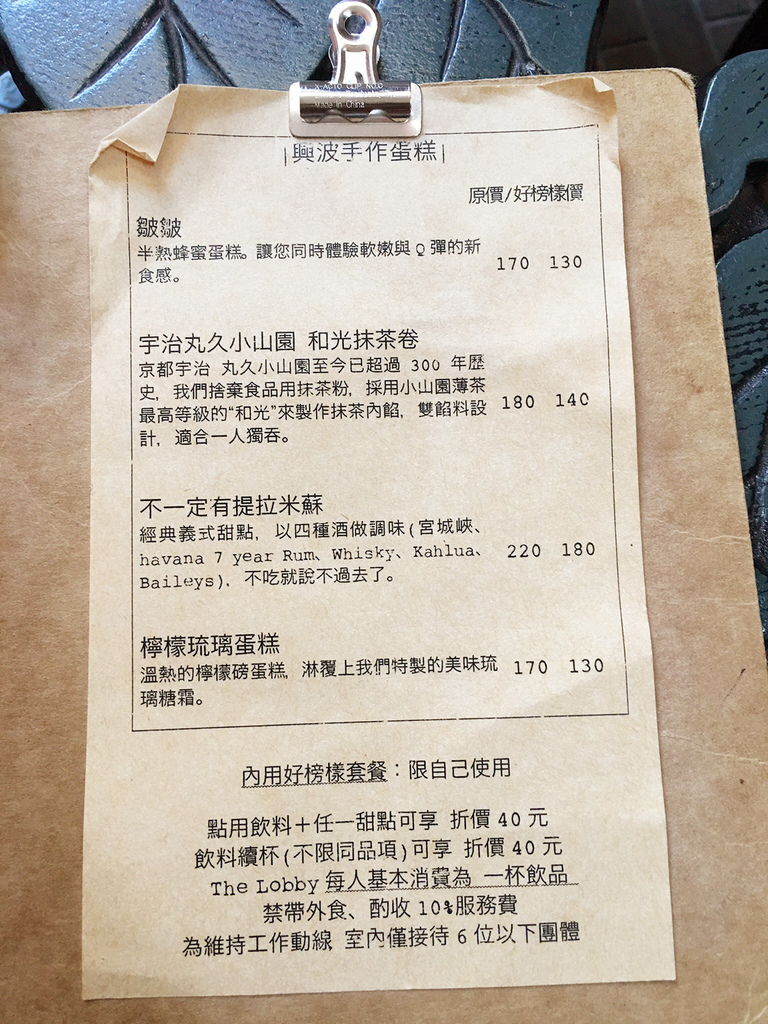 X-ACTO CLIP NO.0
Made in China
|興波手作蛋糕|
原價/好榜樣價
皺皺
半熟蜂蜜蛋糕。讓您同時體驗軟嫩與 Q 彈的新
食感。
170 130
宇治丸久小山園 和光抹茶卷
京都宇治 丸久小山園至今已超過 300 年歷
史，我們捨棄食品用抹茶粉，採用小山園薄茶
最高等級的“和光”來製作抹茶內餡，雙餡料設
計，適合一人獨吞。
180 140
不一定有提拉米蘇
經典義式甜點，以四種酒做調味(宮城峽、
havana 7 year Rum、Whisky、Kahlua、
Baileys)，不吃就說不過去了。
220 180
檸檬琉璃蛋糕
溫熱的檸檬磅蛋糕，淋覆上我們特製的美味琉
璃糖霜。
170 130
內用好榜樣套餐：限自己使用
點用飲料＋任一甜點可享 折價 40 元
飲料續杯(不限同品項)可享 折價 40 元
The Lobby 每人基本消費為 一杯飲品
禁帶外食、酌收 10%服務費
為維持工作動線 室內僅接待 6 位以下團體